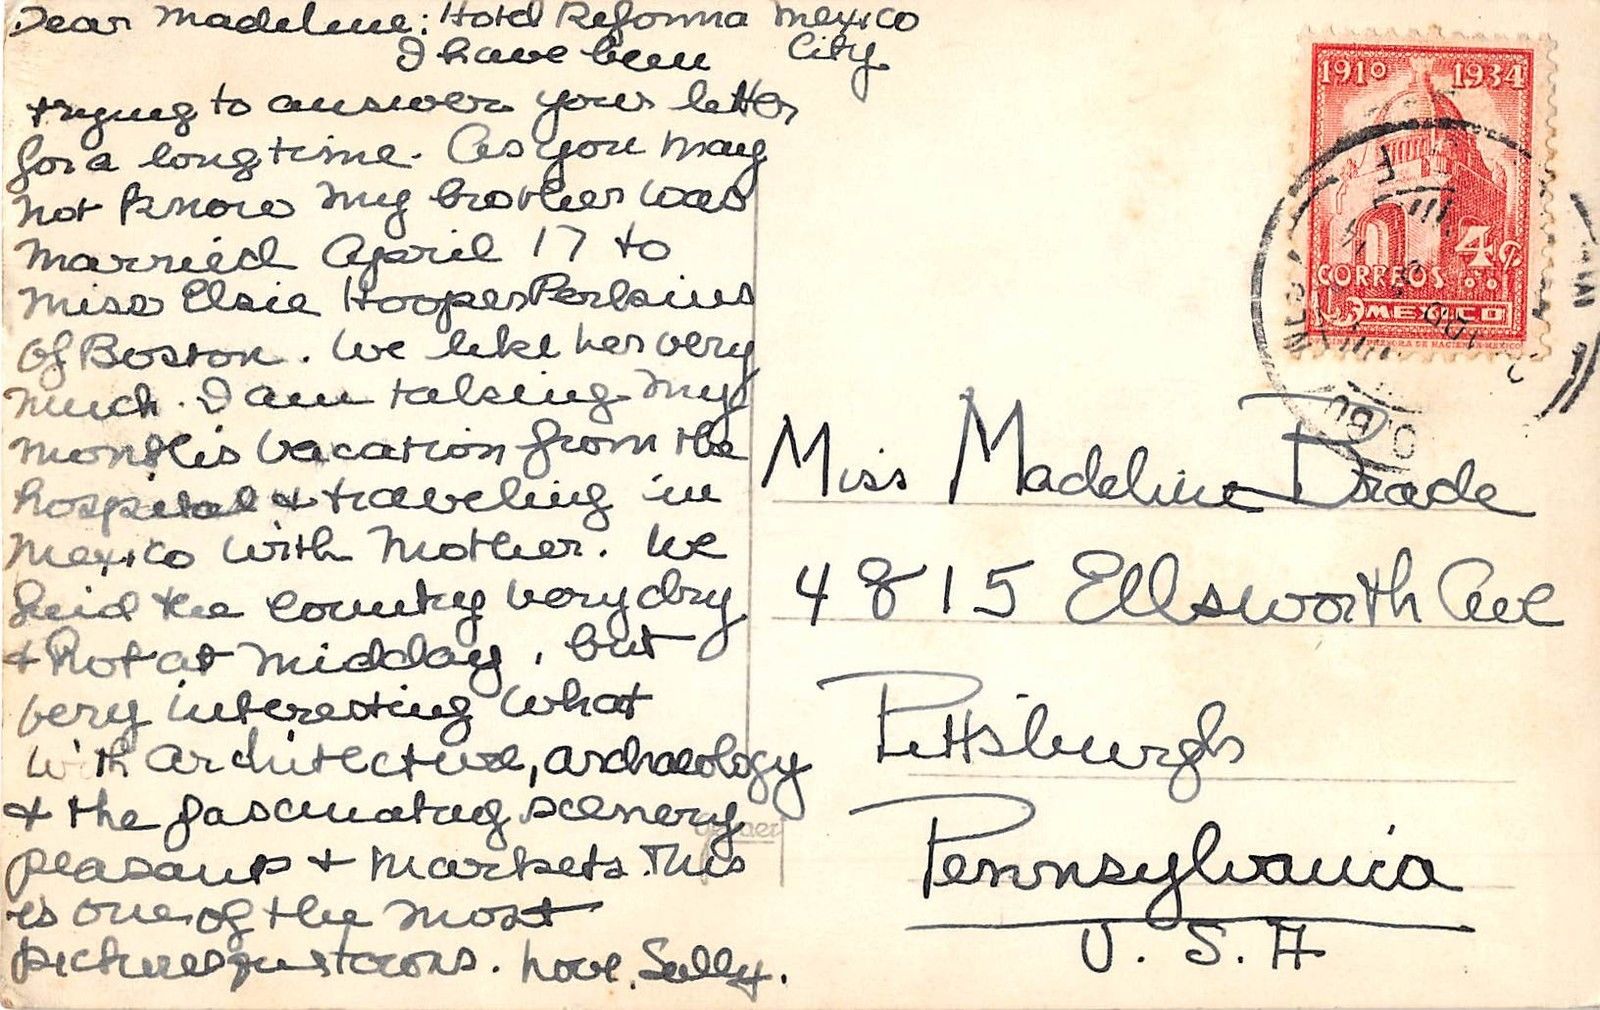 Dear Madeline: Hotel Reforma Mexico
I have been City
trying to answer your letter
for a long time. As you may
not know my brother was
married April 17 to
Miss Elsie Hooper Perkins
of Boston. We like her very
much. I am taking my
month's vacation from the
hospital & traveling in
Mexico with Mother. We
find the country very dry
& hot at midday, but
very interesting what
with architecture, archaeology
& the fascinating scenery
peasants & markets. This
is one of the most
picturesque towns. Love, Sally.
1910 1934
4¢
CORREOS
MEXICO
Miss Madeline Brade
4815 Ellsworth Ave
Pittsburgh
Pennsylvania
U. S. A